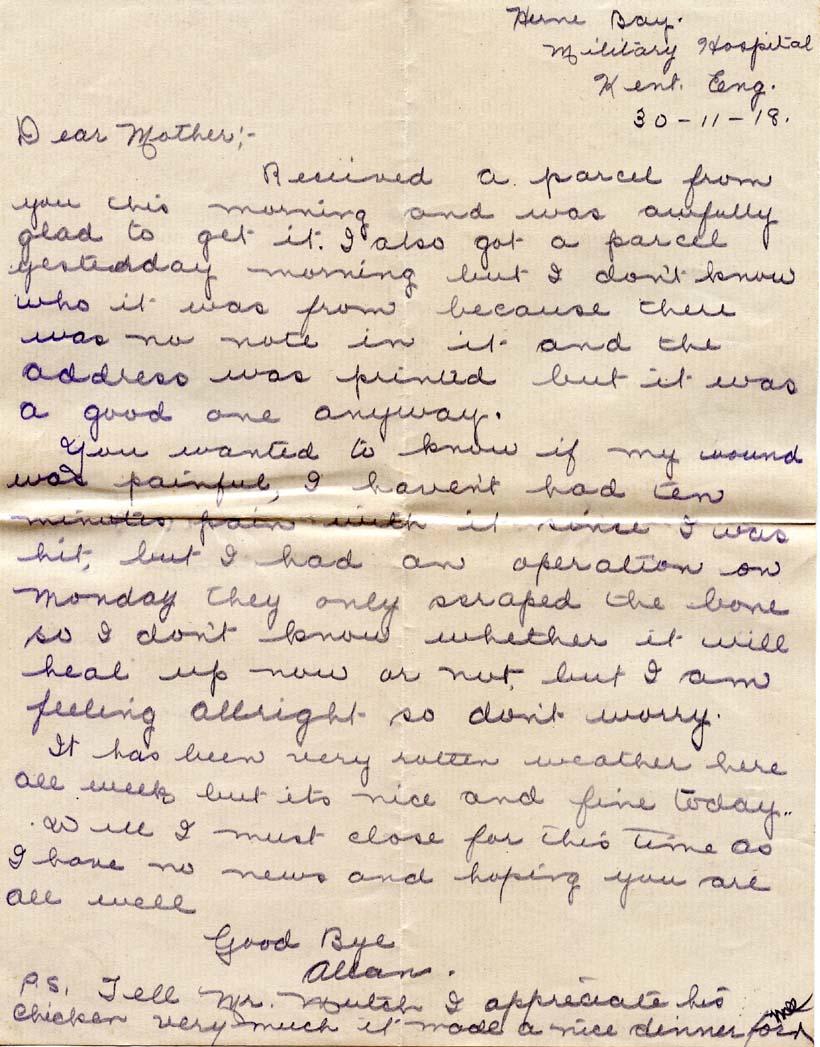 Herne Bay.
Military Hospital
Kent. Eng.
30-11-18.
Dear Mother;-
Received a parcel from
you this morning and was awfully
glad to get it. I also got a parcel
yestedday morning but I don't know
who it was from because there
was no note in it and the
address was printed but it was
a good one anyway.
You wanted to know if my wound
was painful, I haven't had ten
minutes pain with it since I was
hit, but I had an operation on
Monday they only scraped the bone
so I don't know whether it will
heal up now or not, but I am
feeling allright so don't worry.
It has been very rotten weather here
all week but its nice and fine today..
Well I must close for this time as
I have no news and hoping you are
all well
Good Bye
Allan.
P.S. Tell Mr. Mutch I appreciate his
chicken very much it made a nice dinner for me